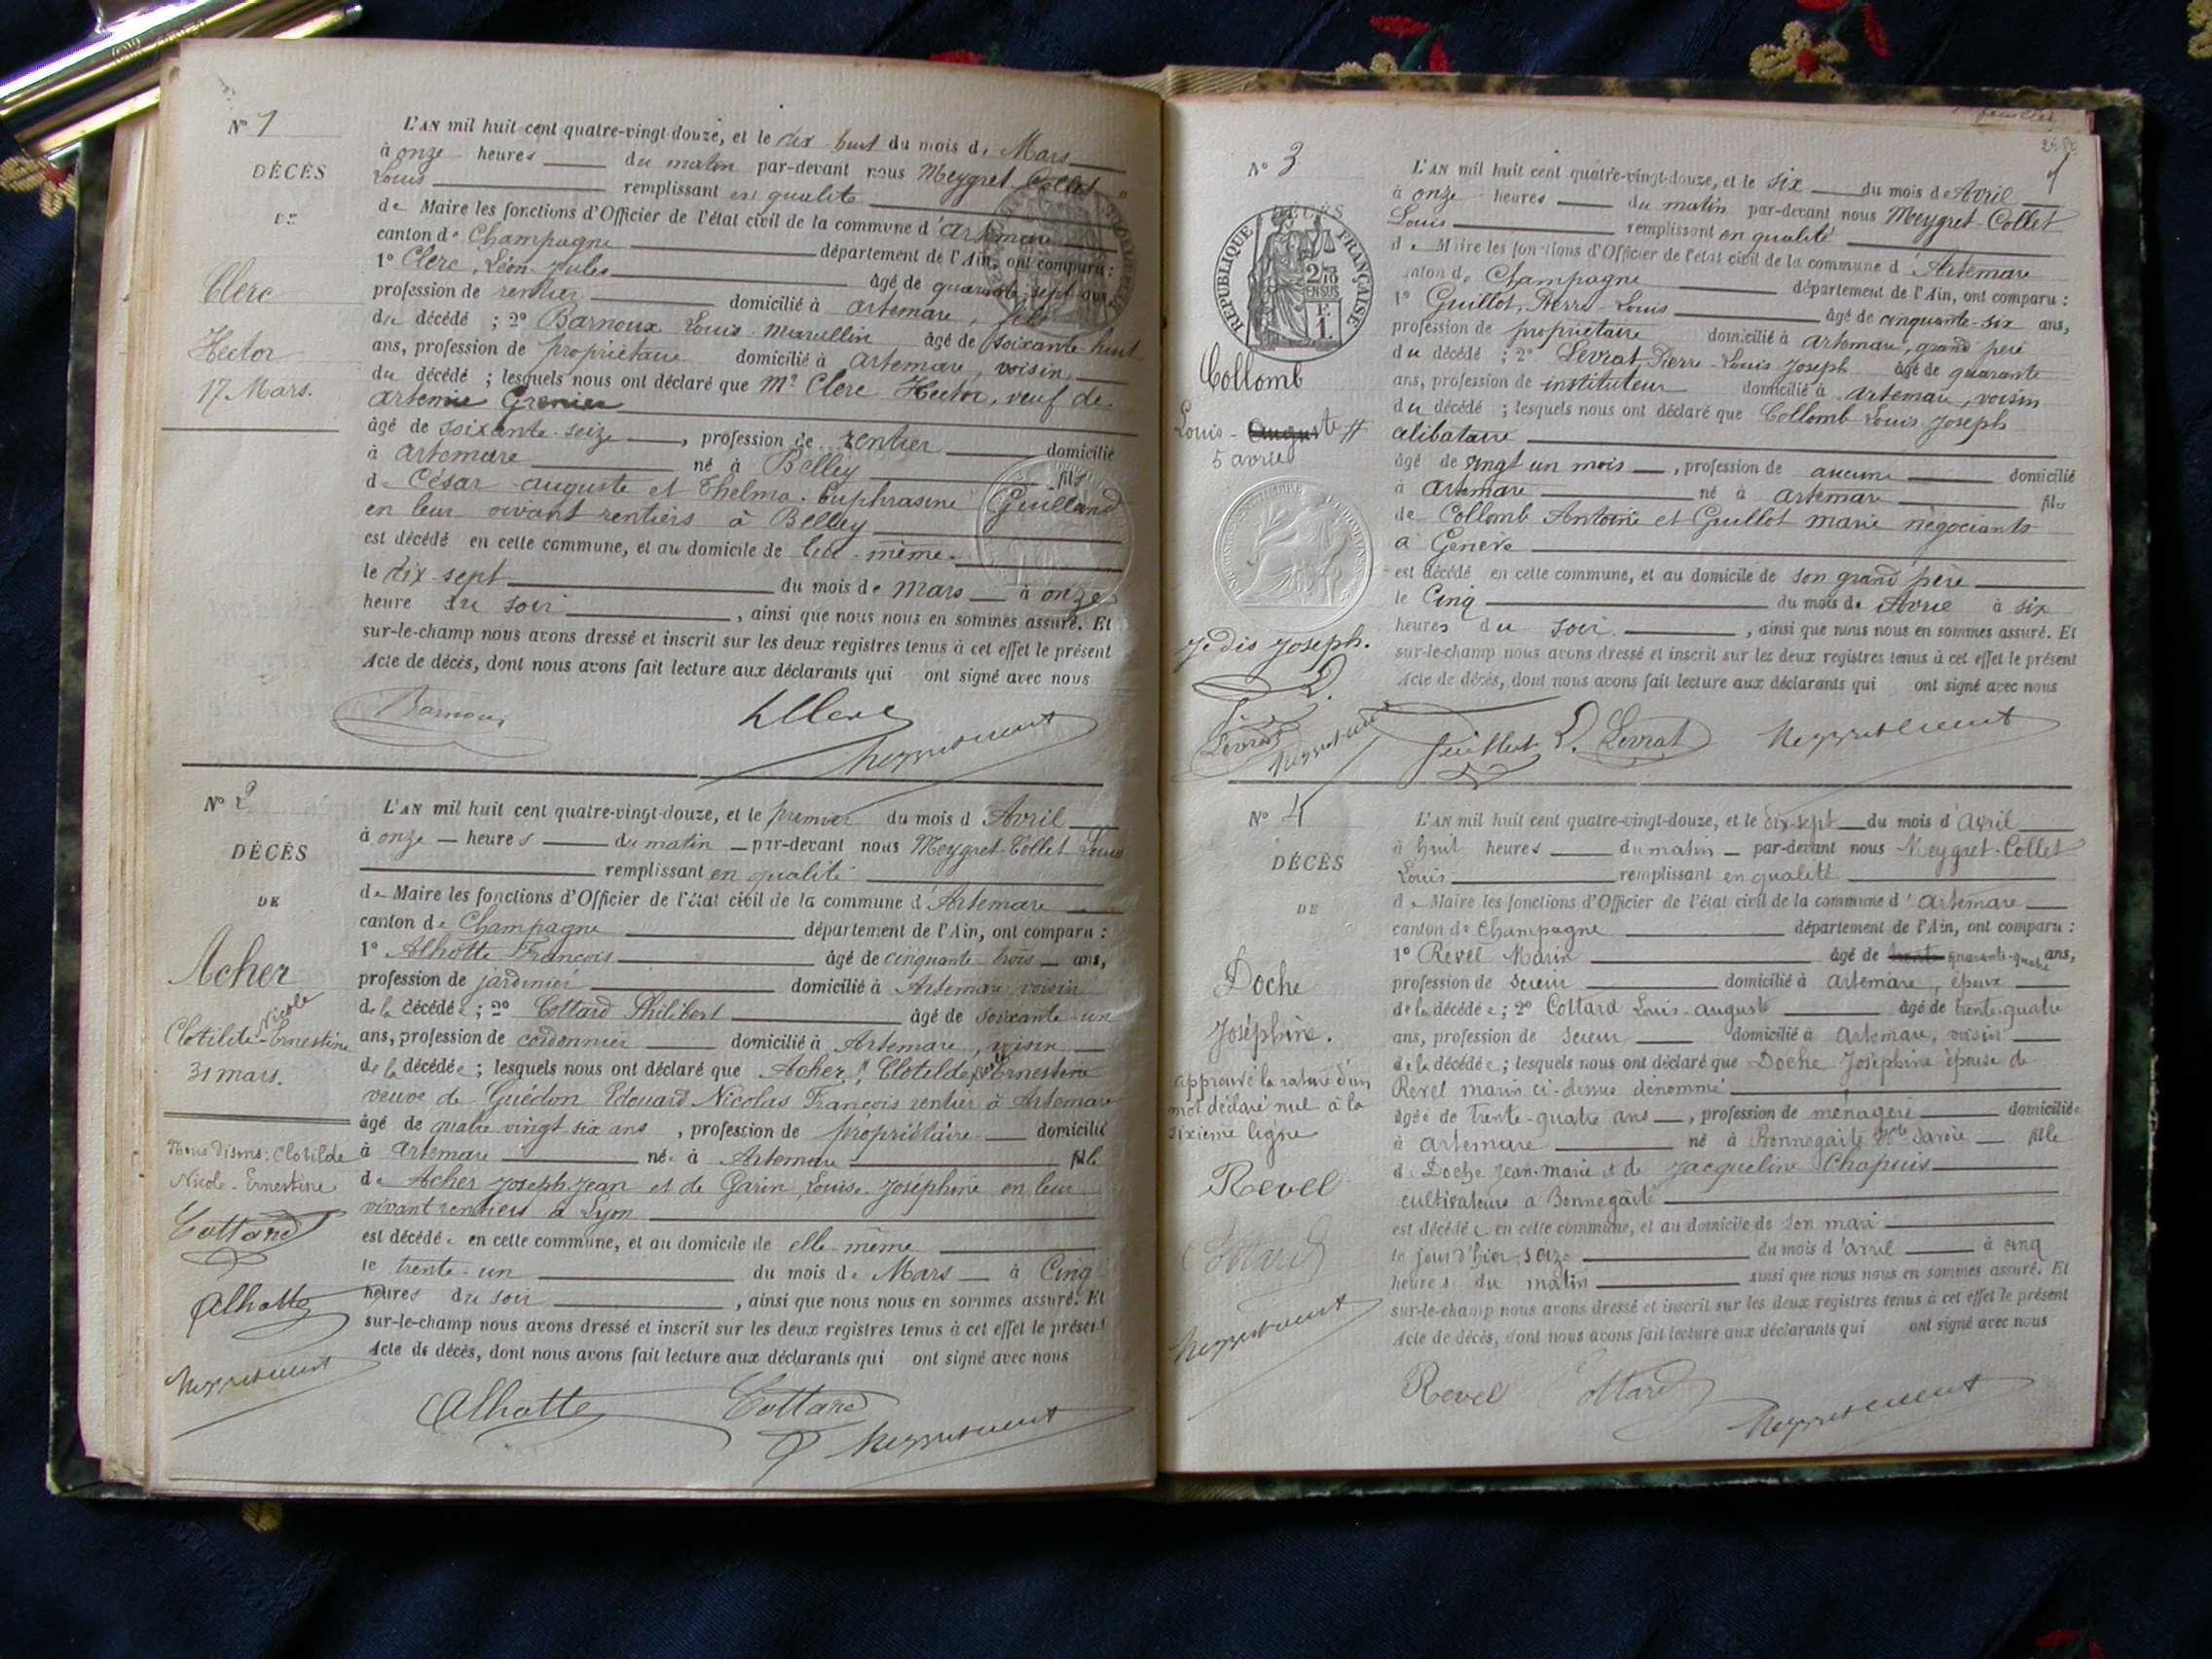 N° 1
DÉCÈS
DE
Clerc
Hector
17 Mars.
L'AN mil huit cent quatre-vingt-douze, et le dix huit du mois de Mars
à onze heures du matin par-devant nous Meygret Collet
Louis remplissant en qualité
de Maire les fonctions d'Officier de l'état civil de la commune d'Artemare
canton de Champagne département de l'Ain, ont comparu :
1° Clerc, Léon Jules âgé de quarante-sept ans
profession de rentier domicilié à artemare, fils
du décédé ; 2° Barnoux Louis Marcellin âgé de soixante huit
ans, profession de propriétaire domicilié à artemare, voisin
du décédé ; lesquels nous ont déclaré que Mr Clerc Hector, veuf de
artemie Grenier
âgé de soixante-seize, profession de rentier domicilié
à artemare né à Belley fils
de César-auguste et Thelma-Euphrasine Guilland
en leur vivant rentiers à Belley
est décédé en cette commune, et au domicile de lui-même
le dix-sept du mois de Mars à onze
heure du soir, ainsi que nous nous en sommes assuré. Et
sur-le-champ nous avons dressé et inscrit sur les deux registres tenus à cet effet le présent
Acte de décès, dont nous avons fait lecture aux déclarants qui ont signé avec nous
Barnoux LClerc
N° 2
DÉCÈS
DE
Acher
Nicole
Clotilde-Ernestine
31 mars.
Nous disons : Clotilde
Nicole-Ernestine
Cottard
Alhotte
L'AN mil huit cent quatre-vingt-douze, et le premier du mois d'Avril
à onze heures du matin par-devant nous Meygret-Collet Louis
remplissant en qualité
de Maire les fonctions d'Officier de l'état civil de la commune d'Artemare
canton de Champagne département de l'Ain, ont comparu :
1° Alhotte François âgé de cinquante trois ans,
profession de jardinier domicilié à Artemare, voisin
de la décédée ; 2° Cottard Philibert âgé de soixante-un
ans, profession de cordonnier domicilié à Artemare, voisin
de la décédée ; lesquels nous ont déclaré que Acher, Clotilde Ernestine
veuve de Guédon Edouard Nicolas François rentier à Artemare
âgé de quatre vingt six ans, profession de propriétaire domicilié
à Artemare née à Artemare fille
de Acher Joseph Jean et de Garin, Louise-Joséphine en leur
vivant rentiers à Lyon
est décédée en cette commune, et au domicile de elle-même
le trente-un du mois de Mars à Cinq
heures du soir, ainsi que nous nous en sommes assuré. Et
sur-le-champ nous avons dressé et inscrit sur les deux registres tenus à cet effet le présent
Acte de décès, dont nous avons fait lecture aux déclarants qui ont signé avec nous
Alhotte Cottard
feuillet
1
N° 3
DÉCÈS
RÉPUBLIQUE FRANÇAISE
Collomb
Louis-Auguste
5 avril
Je dis Joseph.
Levrat
L'AN mil huit cent quatre-vingt-douze, et le six du mois de Avril
à onze heures du matin par-devant nous Meygret-Collet
Louis remplissant en qualité
de Maire les fonctions d'Officier de l'état civil de la commune d'Artemare
canton de Champagne département de l'Ain, ont comparu :
1° Guillot, Pierre Louis âgé de cinquante-six ans,
profession de propriétaire domicilié à artemare, grand père
du décédé ; 2° Levrat, Pierre-Louis Joseph âgé de quarante
ans, profession de instituteur domicilié à artemare, voisin
du décédé ; lesquels nous ont déclaré que Collomb Louis Joseph
célibataire
âgé de vingt un mois, profession de aucune domicilié
à artemare né à artemare fils
de Collomb Antoine et Guillot marie négociants
à Genève
est décédé en cette commune, et au domicile de son grand père
le Cinq du mois de Avril à six
heures du soir, ainsi que nous nous en sommes assuré. Et
sur-le-champ nous avons dressé et inscrit sur les deux registres tenus à cet effet le présent
Acte de décès, dont nous avons fait lecture aux déclarants qui ont signé avec nous
Guillot L. Levrat
N° 4
DÉCÈS
DE
Doche
Joséphine.
Approuvé la rature d'un
mot déclaré nul à la
sixième ligne
Revel
Cottard
L'AN mil huit cent quatre-vingt-douze, et le dix-sept du mois d'avril
à huit heures du matin par-devant nous Meygret-Collet
Louis remplissant en qualité
de Maire les fonctions d'Officier de l'état civil de la commune d'artemare
canton de Champagne département de l'Ain, ont comparu :
1° Revel Marin âgé de trente quarante-quatre ans,
profession de scieur domicilié à artemare, époux
de la décédée ; 2° Cottard Louis-auguste âgé de trente-quatre
ans, profession de scieur domicilié à artemare, voisin
de la décédée ; lesquels nous ont déclaré que Doche Joséphine épouse de
Revel marin ci-dessus dénommé
âgée de trente-quatre ans, profession de ménagère domiciliée
à artemare né à Bonneguête Hte Savoie fille
de Doche Jean-marie et de Jacqueline Chapuis
cultivateurs à
est décédée en cette commune, et au domicile de son mari
le jour d'hier, seize du mois d'avril à cinq
heures du matin ainsi que nous nous en sommes assuré. Et
sur-le-champ nous avons dressé et inscrit sur les deux registres tenus à cet effet le présent
Acte de décès, dont nous avons fait lecture aux déclarants qui ont signé avec nous
Revel Cottard